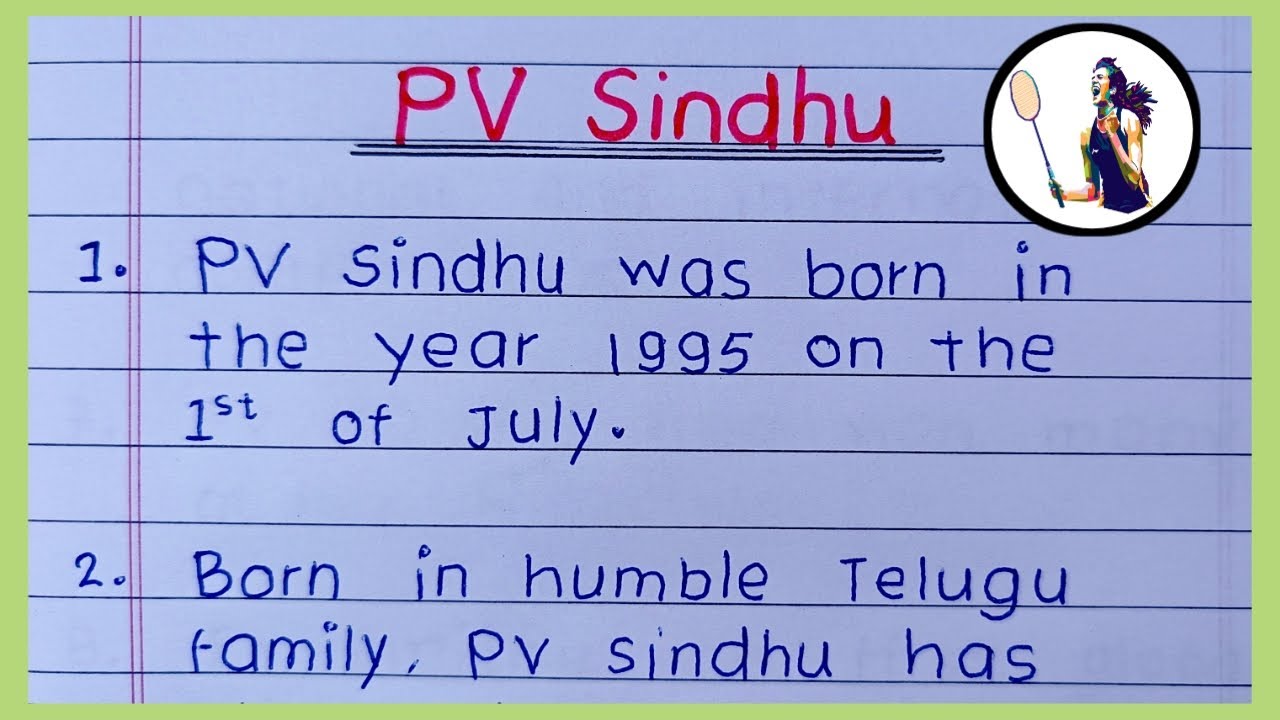 PV Sindhu
1. PV Sindhu was born in
the year 1995 on the
1st of July.
2. Born in humble Telugu
family, PV sindhu has